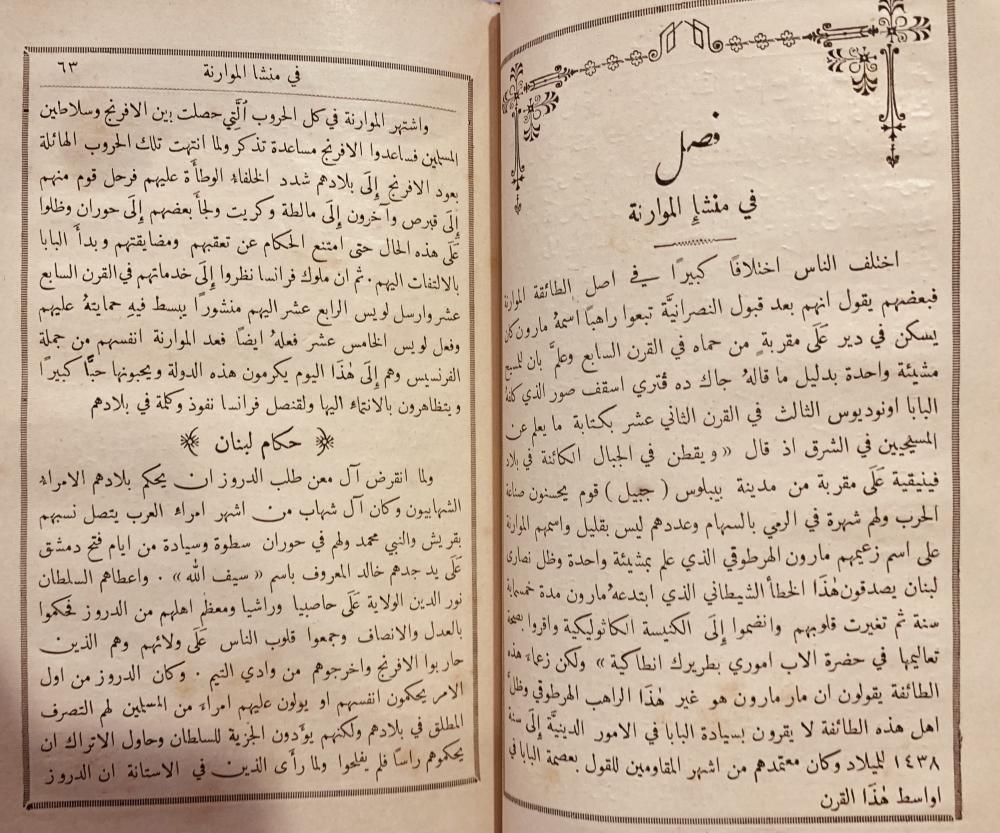 فصل
في منشإِ الموارنة
اختلف الناس اختلافًا كبيرًا في اصل الطائفة الموارنة
فبعضهم يقول انهم بعد قبول النصرانيَّة تبعوا راهبًا اسمهُ مارون كان
يسكن في دير عَلَى مقربةٍ من حماه في القرن السابع وعلَّم بان للمسيح
مشيئة واحدة بدليل ما قالهُ جاك ده ڤتري اسقف صور الذي كلفهُ
البابا اونوديوس الثالث في القرن الثاني عشر بكتابة ما يعلم عن
المسيحيين في الشرق اذ قال « ويقطن في الجبال الكائنة في بلاد
فينيقية عَلَى مقربة من مدينة بيبلوس ( جبيل ) قوم يحسنون صناعة
الحرب ولهم شهرة في الرمي بالسهام وعددهم ليس بقليل واسمهم الموارنة
على اسم زعيمهم مارون الهرطوقي الذي علم بمشيئة واحدة وظل نصارى
لبنان يصدقون هٰذَا الخطأ الشيطاني الذي ابتدعهُ مارون مدة خمسماية
سنة ثم تغيرت قلوبهم وانضموا إِلَى الكنيسة الكاثوليكية واقروا بصحة
تعاليمها في حضرة الاب اموري بطريرك انطاكية » ولكن زعماء هذه
الطائفة يقولون ان مار مارون هو غير هٰذَا الراهب الهرطوقي وظلَّ
اهل هذه الطائفة لا يقرون بسيادة البابا في الامور الدينيَّة إِلَى سنة
١٤٣٨ للميلاد وكان معتمدهم من اشهر المقاومين للقول بعصمة البابا في
اواسط هٰذَا القرن
في منشا الموارنة ٦٣
واشتهر الموارنة في كل الحروب ٱلَّتي حصلت بين الافرنج وسلاطين
المسلمين فساعدوا الافرنج مساعدة تذكر ولما انتهت تلك الحروب الهائلة
بعود الافرنج إِلَى بلادهم شدد الخلفاء الوطأَة عليهم فرحل قوم منهم
إِلَى قبرص وآخرون إِلَى مالطة وكريت ولجأَ بعضهم إِلَى حوران وظلوا
عَلَى هذه الحال حتى امتنع الحكام عن تعقبهم ومضايقتهم وبدأَ البابا
بالالتفات اليهم . ثم ان ملوك فرانسا نظروا إِلَى خدماتهم في القرن السابع
عشر وارسل لويس الرابع عشر اليهم منشورًا يبسط فيهِ حمايتهُ عليهم
وفعل لويس الخامس عشر فعلهُ ايضًا فعد الموارنة انفسهم من جملة
الفرنسيس وهم إِلَى هٰذَا اليوم يكرمون هذه الدولة ويحبونها حبًّا كبيرًا
ويتظاهرون بالانتماء اليها ولقنصل فرانسا نفوذ وكلمة في بلادهم
حكام لبنان
ولما انقرض آل معن طلب الدروز ان يحكم بلادهم الامراء
الشهابيون وكان آل شهاب من اشهر امراء العرب يتصل نسبهم
بقريش والنبي محمد ولهم في حوران سطوة وسيادة من ايام فتح دمشق
عَلَى يد جدهم خالد المعروف باسم « سيف الله » . واعطاهم السلطان
نور الدين الولاية عَلَى حاصبيا وراشيا ومعظم اهلهم من الدروز فحكموا
بالعدل والانصاف وجمعوا قلوب الناس عَلَى ولائهم وهم الذين
حاربوا الافرنج واخرجوهم من وادي التيم . وكان الدروز من اول
الامر يحكمون انفسهم او يولون عليهم امراء من المسلمين لهم التصرف
المطلق في بلادهم ولكنهم يؤدون الجزية للسلطان وحاول الاتراك ان
يحكموهم راسًا فلم يفلحوا ولما رأَى الذين في الاستانة ان الدروز